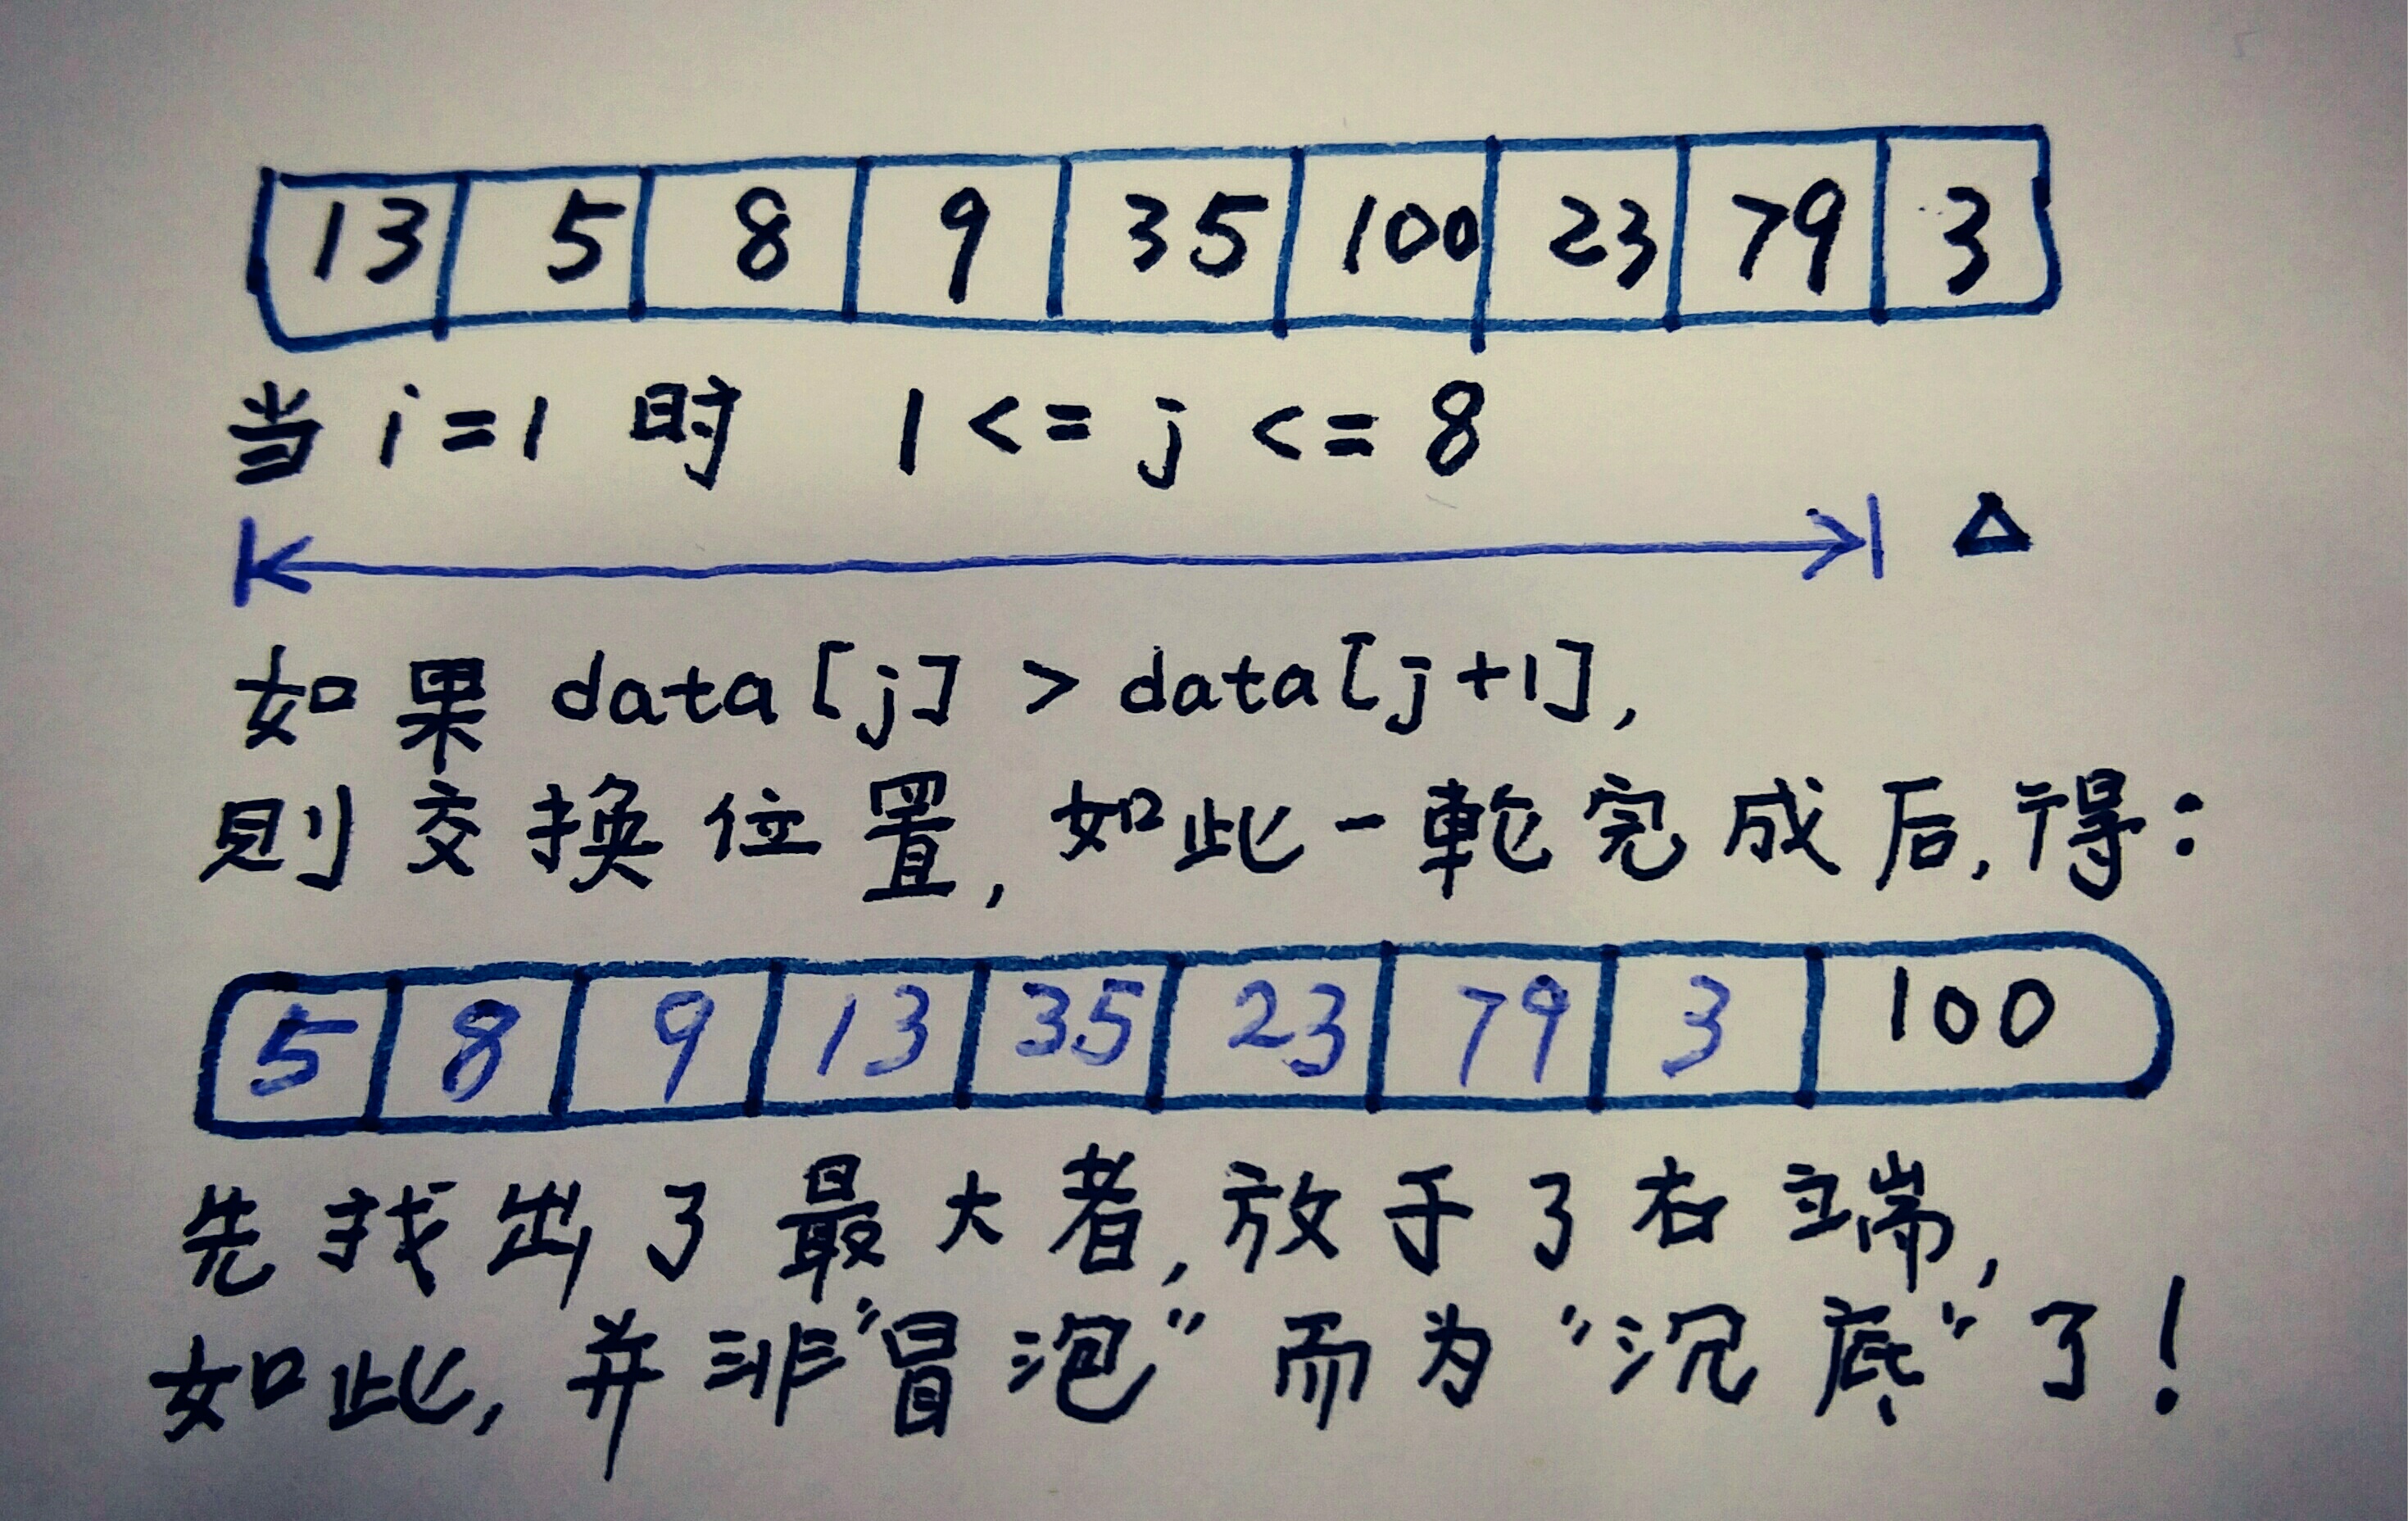 13 5 8 9 35 100 23 79 3
当 i=1 时 1 <= j <= 8
如果 data[j] > data[j+1],
则交换位置, 如此一轮完成后, 得:
5 8 9 13 35 23 79 3 100
先找出了最大者, 放于了右端,
如此, 并非"冒泡" 而为"沉底"了!